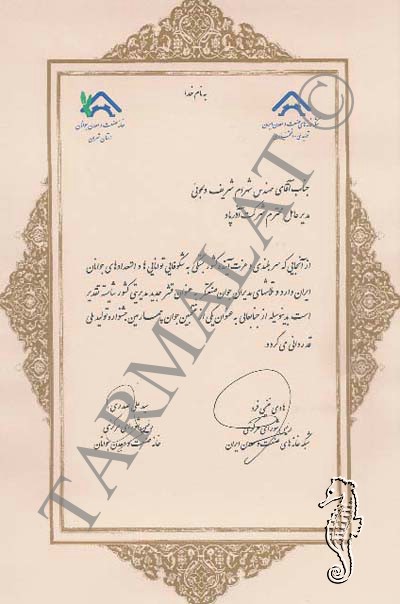 به نام خدا
خانه صنعت و معدن جوانان
استان تهران
جناب آقای مهندس شهرام شریف دلجوئی
مدیر عامل محترم شرکت آذر پاد
از آنجایی که سربلندی و عزت آینده کشور متکی به شکوفایی توانایی ها و استعدادهای جوانان
ایران دارد و تلاشهای مدیران جوان صنعتگر به عنوان قشر جدید مدیریتی کشور شایسته تقدیر
است، بدینوسیله از جنابعالی به عنوان یکی از منتخبین جوان چهارمین جشنواره تولید ملی
قدردانی می گردد.
هادی غنیمی فرد
رئیس شورای مرکزی
شبکه خانه های صنعت و معدن ایران
سید علی صدری
رئیس شورای مرکزی
خانه صنعت و معدن جوانان
TARMALAT ©